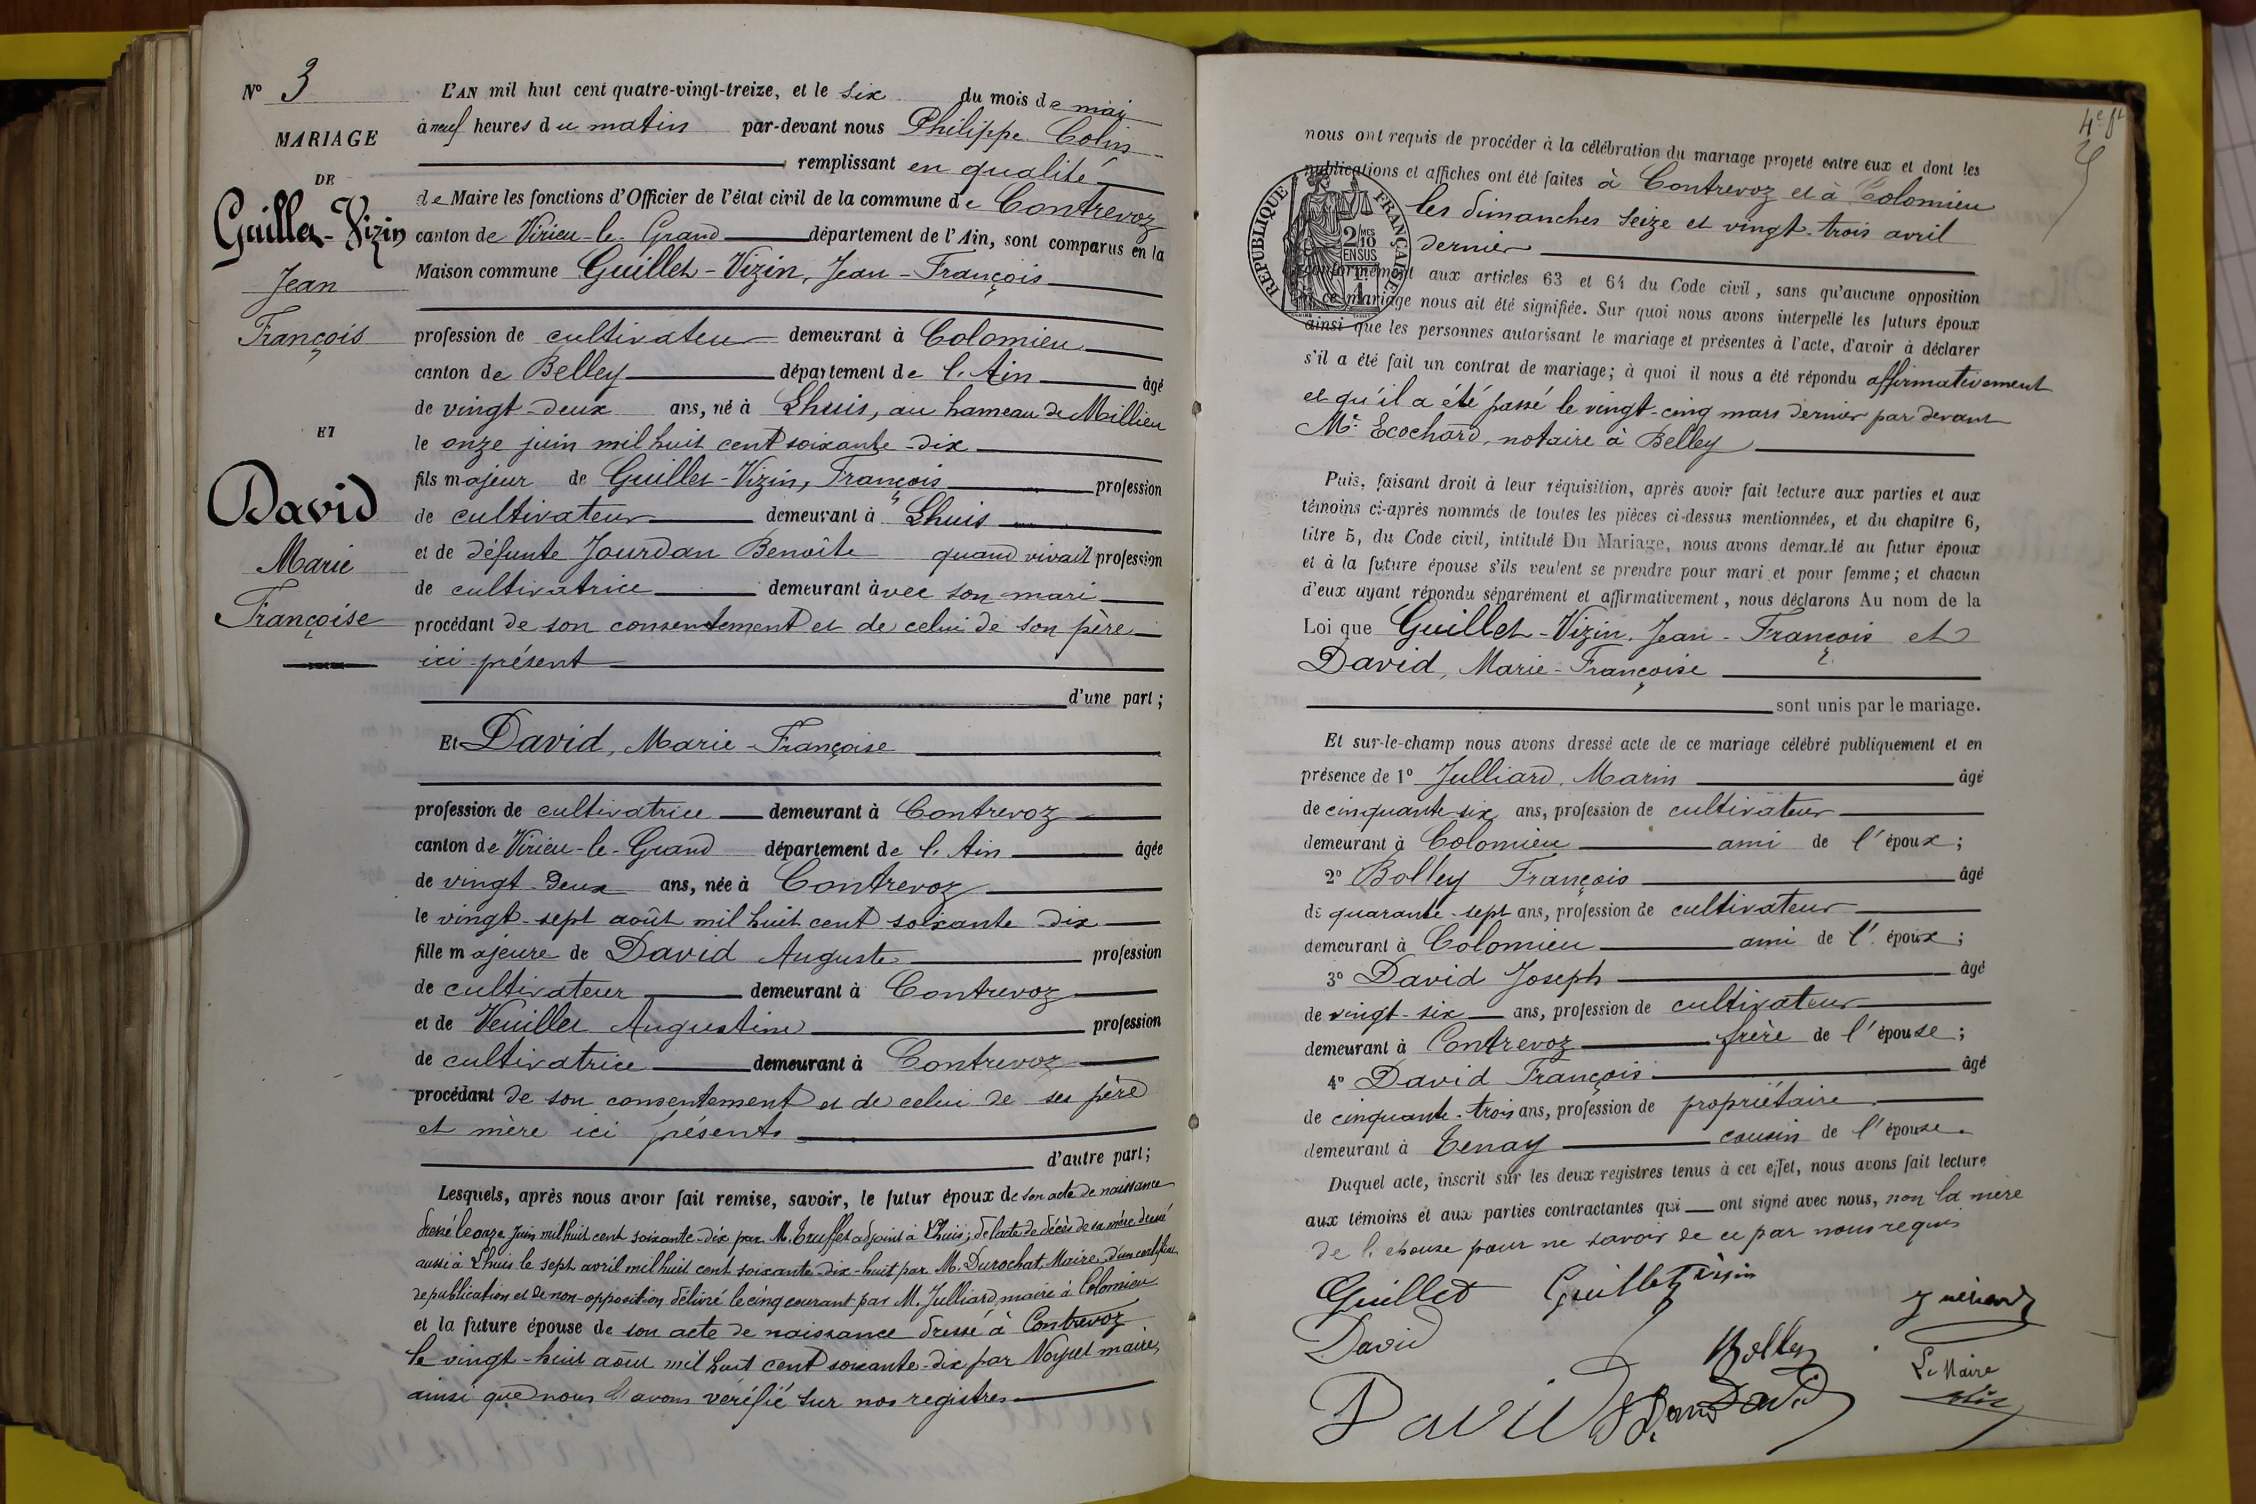 N° 3
MARIAGE
DE
Guillet-Vizin
Jean
François
ET
David
Marie
Françoise
L'AN mil huit cent quatre-vingt-treize, et le six du mois de mai
à neuf heures du matin par-devant nous Philippe Colin
remplissant en qualité
de Maire les fonctions d'Officier de l'état civil de la commune de Contrevoz
canton de Virieu-le-Grand département de l'Ain, sont comparus en la
Maison commune Guillet-Vizin, Jean-François
profession de cultivateur demeurant à Colomieu
canton de Belley département de l'Ain âgé
de vingt-deux ans, né à Lhuis, au hameau de Millieu
le onze juin mil huit cent soixante-dix
fils majeur de Guillet-Vizin, François profession
de cultivateur demeurant à Lhuis
et de défunte Jourdan Benoîte quand vivait profession
de cultivatrice demeurant avec son mari
procédant de son consentement et de celui de son père
ici présent
d'une part;
Et David, Marie-Françoise
profession de cultivatrice demeurant à Contrevoz
canton de Virieu-le-Grand département de l'Ain âgée
de vingt-deux ans, née à Contrevoz
le vingt-sept août mil huit cent soixante-dix
fille majeure de David Auguste profession
de cultivateur demeurant à Contrevoz
et de Veuillet Augustine profession
de cultivatrice demeurant à Contrevoz
procédant de son consentement et de celui de ses père
et mère ici présents
d'autre part;
Lesquels, après nous avoir fait remise, savoir, le futur époux de son acte de naissance
dressé le onze juin mil huit cent soixante-dix par M. Truffet adjoint à Lhuis; de l'acte de décès de sa mère dressé
aussi à Lhuis le sept avril mil huit cent soixante-dix-huit par M. Durochat, Maire, d'un certificat
de publication et de non-opposition délivré le cinq courant par M. Julliard, maire à Colomieu
et la future épouse de son acte de naissance dressé à Contrevoz
le vingt-huit août mil huit cent soixante-dix par Noyret maire,
ainsi que nous l'avons vérifié sur nos registres
4e ft
nous ont requis de procéder à la célébration du mariage projeté entre eux et dont les
publications et affiches ont été faites à Contrevoz et à Colomieu
les dimanches seize et vingt-trois avril
dernier
RÉPUBLIQUE FRANÇAISE
2/10 MES
EN SUS
conformément aux articles 63 et 64 du Code civil, sans qu'aucune opposition
à ce mariage nous ait été signifiée. Sur quoi nous avons interpellé les futurs époux
ainsi que les personnes autorisant le mariage et présentes à l'acte, d'avoir à déclarer
s'il a été fait un contrat de mariage; à quoi il nous a été répondu affirmativement
et qu'il a été passé le vingt-cinq mars dernier par devant
Me Ecochard, notaire à Belley
Puis, faisant droit à leur réquisition, après avoir fait lecture aux parties et aux
témoins ci-après nommés de toutes les pièces ci-dessus mentionnées, et du chapitre 6,
titre 5, du Code civil, intitulé Du Mariage, nous avons demandé au futur époux
et à la future épouse s'ils veulent se prendre pour mari et pour femme; et chacun
d'eux ayant répondu séparément et affirmativement, nous déclarons Au nom de la
Loi que Guillet-Vizin, Jean-François et
David, Marie-Françoise
sont unis par le mariage.
Et sur-le-champ nous avons dressé acte de ce mariage célébré publiquement et en
présence de 1° Julliard, Marin âgé
de cinquante-six ans, profession de cultivateur
demeurant à Colomieu ami de l'époux;
2° Bolley François âgé
de quarante-sept ans, profession de cultivateur
demeurant à Colomieu ami de l'époux;
3° David Joseph âgé
de vingt-six ans, profession de cultivateur
demeurant à Contrevoz frère de l'épouse;
4° David François âgé
de cinquante-trois ans, profession de propriétaire
demeurant à Tenay cousin de l'épouse.
Duquel acte, inscrit sur les deux registres tenus à cet effet, nous avons fait lecture
aux témoins et aux parties contractantes qui ont signé avec nous, non la mère
de l'épouse pour ne savoir de ce par nous requis
Guillet Guillet Vizin
David Bolley
Le Maire
David David